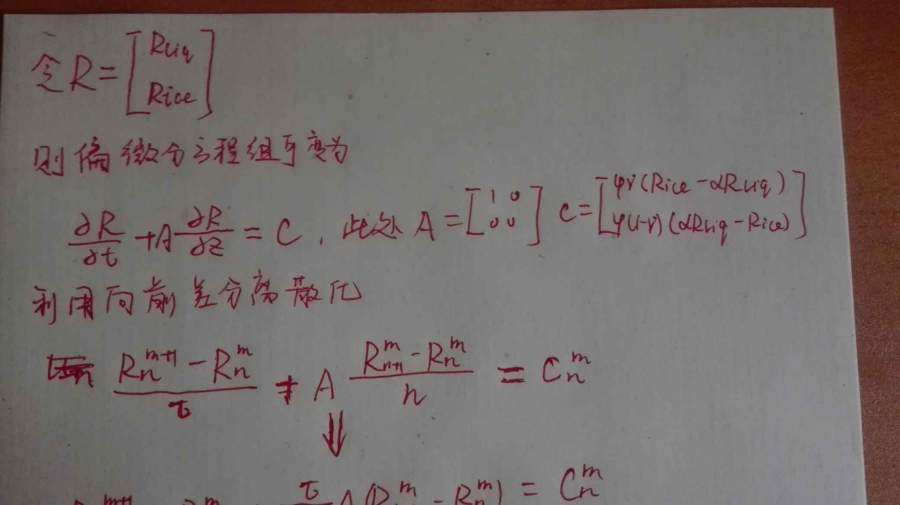 令 R = [ Rliq
Rice ]
则偏微分方程组可变为
∂R/∂t + A ∂R/∂z = C , 此处 A = [ 1 0 ; 0 0 ] C = [ φr(Rice - αRliq) ; φ(1-r)(αRliq - Rice) ]
利用向前差分离散化
(R_n^{m+1} - R_n^m)/τ + A (R_{n+1}^m - R_n^m)/h = C_n^m
⇓
A(R^m - R_n^m) = C_n^m